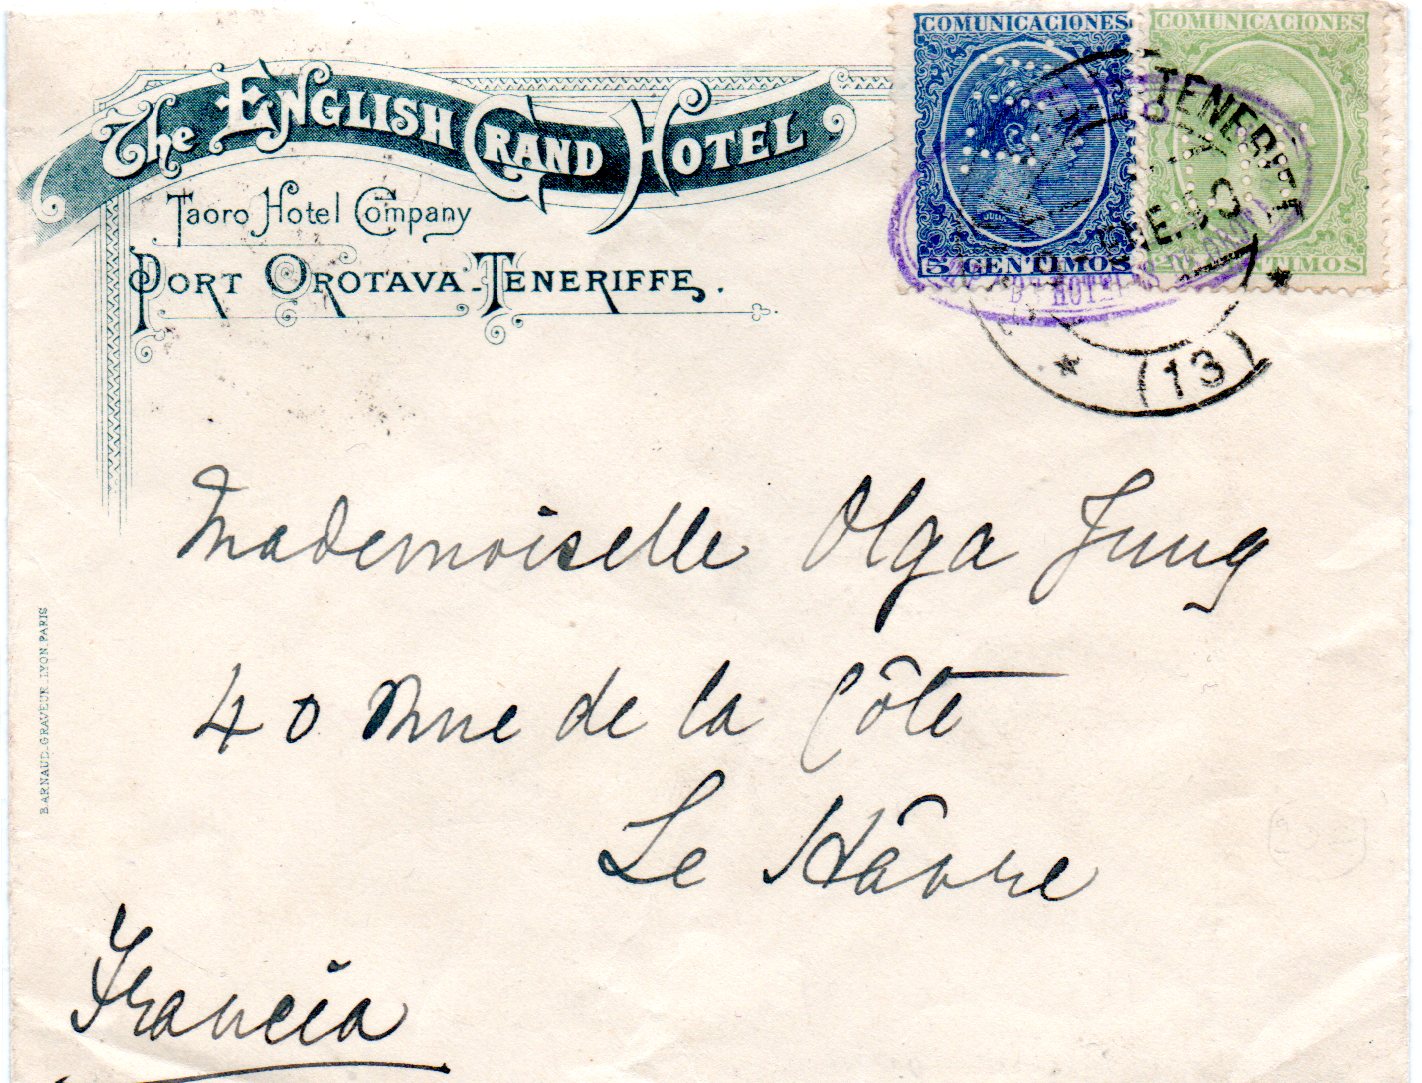 The ENGLISH GRAND HOTEL
Taoro Hotel Company
PORT OROTAVA-TENERIFFE.
COMUNICACIONES
5 CENTIMOS
COMUNICACIONES
TENERIFE
ENE.
HOTEL
(13)
Mademoiselle Olga Jung
40 Rue de la Côte
Le Hâvre
Francia
BARNAUD.GRAVEUR.LYON.PARIS